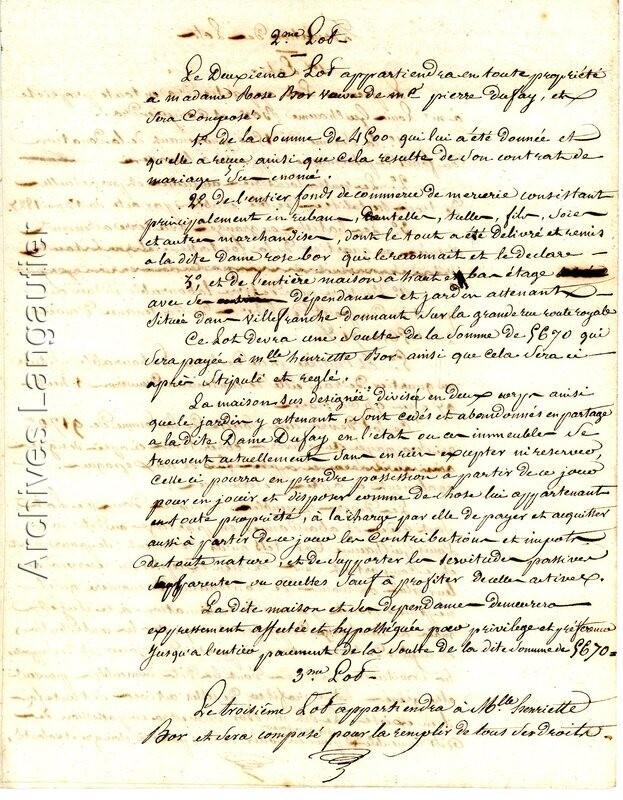 2.me Lot
Le Deuxième Lot appartiendra en toute propriété
à madame Rose Bor veuve de mr pierre Dufay, et
sera Composé.
1.o de la Somme de 4500 qui lui a été donnée et
qu'elle a recue ainsi que cela resulte de Son contrat de
mariage
2.o de l'entier fonds de commerce de mercerie consistant
principalement en ruban, dentelles, tulles, fils, Soie
et autres marchandises, dont le tout a été délivré et remis
à la dite dame rose bor qui le reconnait et le declare
3.o et de l'entière maison à haut et bas étage
avec ses dépendances et jardin attenant
Située dans villefranche donnant Sur la grande rue route royale
Ce Lot devra une Soulte de la Somme de 5670 qui
Sera payée à mlle henriette Bor ainsi que cela Sera ci
après Stipulé et reglé.
La maison Sus designée, divisée en deux corps ainsi
que le jardin y attenant, Sont cédés et abandonnés en partage
a la dite Dame Dufay en l'état ou ces immeubles Se
trouvent actuellement Sans en rien excepter ni reserver,
Celle ci pourra en prendre possession à partir de ce jour
pour en jouir et disposer comme de chose lui appartenant
en toute propriété, à la charge par elle de payer et acquitter
aussi à partir de ce jour les Contributions et impots
de toute nature, et de Supporter les Servitudes passives
apparentes ou occultes Sauf à profiter de celles actives.
La dite maison et Ses dependances demeurera
expressement affectée et hypothéquée par privilege et préférence
Jusqu'a l'entier paiement de la Soulte de la dite Somme de 5670=
3.me Lot
Le troisième Lot appartiendra à Mlle henriette
Bor et Sera composé pour la remplir de tous Ses droits.
Archives Langauffier